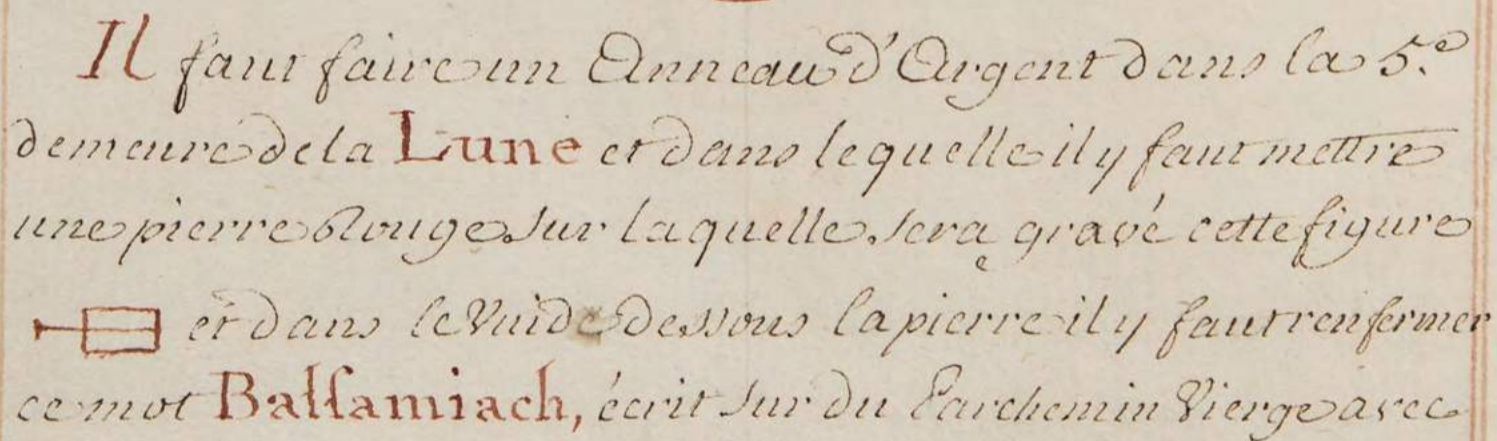 Il faut faire un Anneau d'Argent dans la 5.e
demeure de la Lune et dans lequelle il y faut mettre
une pierre Rouge sur laquelle sera gravé cette figure
et dans le Vuide dessous la pierre il y faut renfermer
ce mot Balsamiach, écrit sur du Parchemin Vierge avec